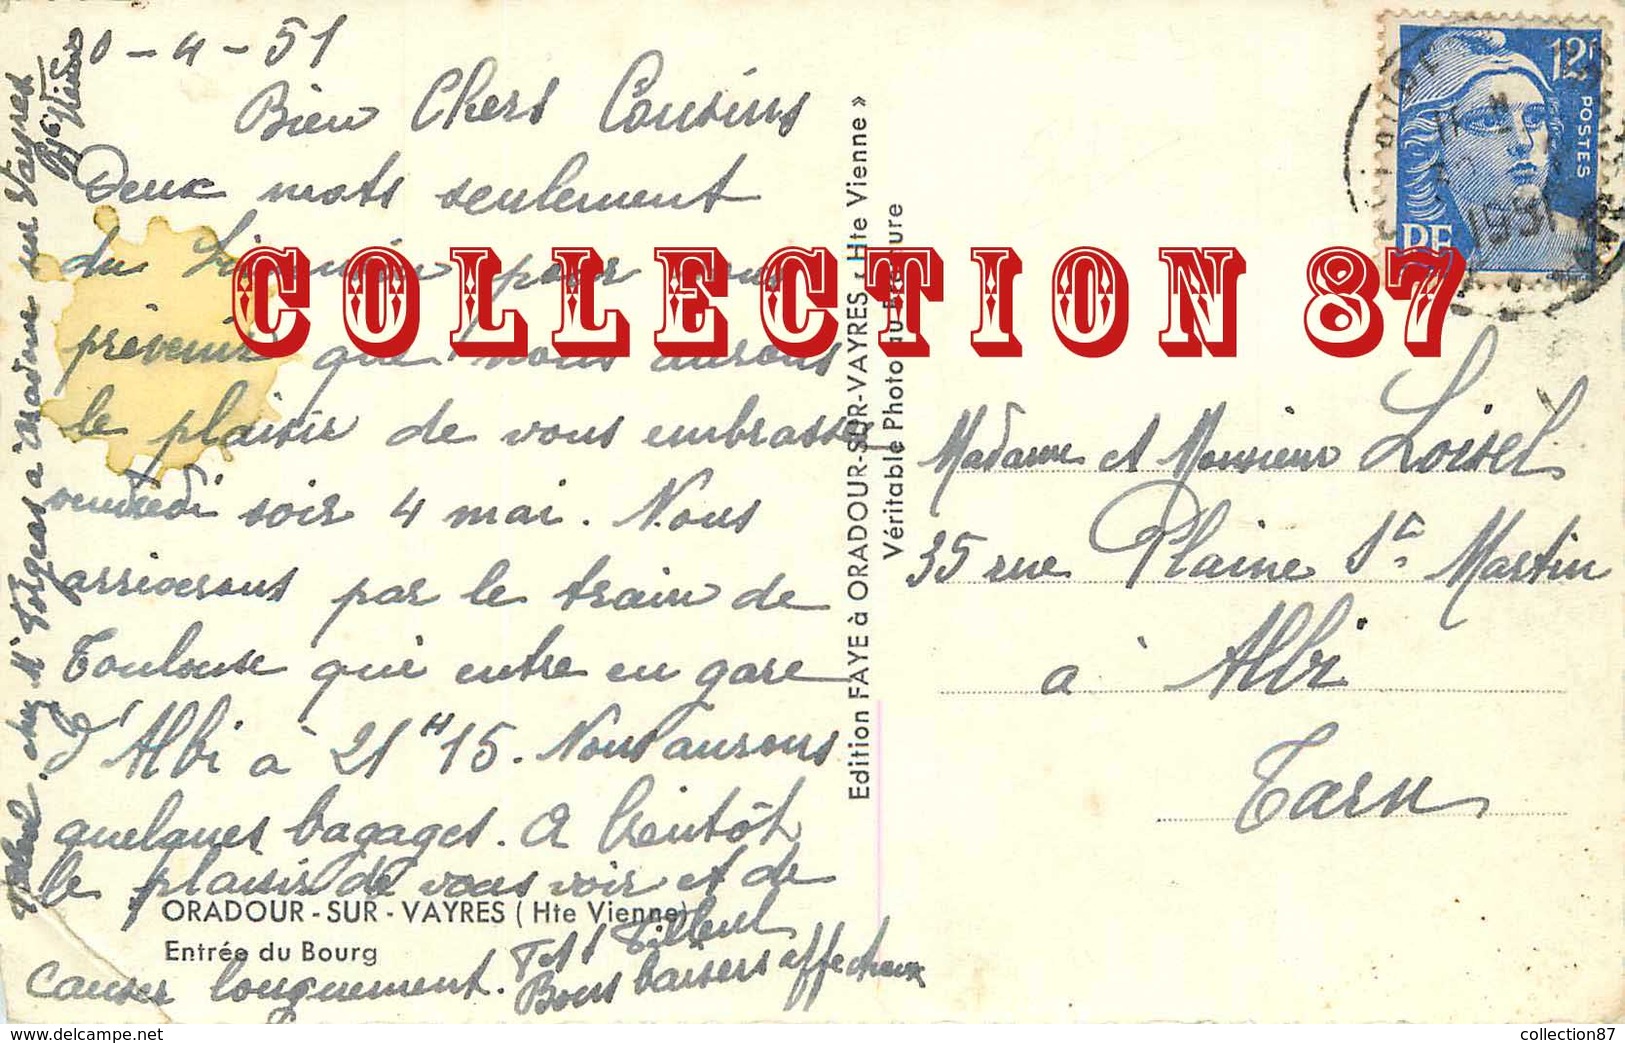 0-4-51
Bien Chers Cousins
Deux mots seulement
du Limousin pour vous
prévenir que nous aurons
le plaisir de vous embrasser
vendredi soir 4 mai. Nous
arriverons par le train de
Toulouse qui entre en gare
d'Albi à 21 H 15. Nous aurons
quelques bagages. A bientôt
le plaisir de vous voir et de
causer longuement.
Bons baisers affectueux
ORADOUR-SUR-VAYRES (Hte Vienne)
Entrée du Bourg
chez Mr Forgeas à Oradour sur Vayres
Hte Vienne
Edition FAYE à ORADOUR-SUR-VAYRES « Hte Vienne »
Véritable Photo au Bromure
COLLECTION 87
12F
POSTES
RF
1951
Madame et Monsieur Loisel
35 rue Plaine St Martin
à Albi
Tarn
delcampe.net
collection87